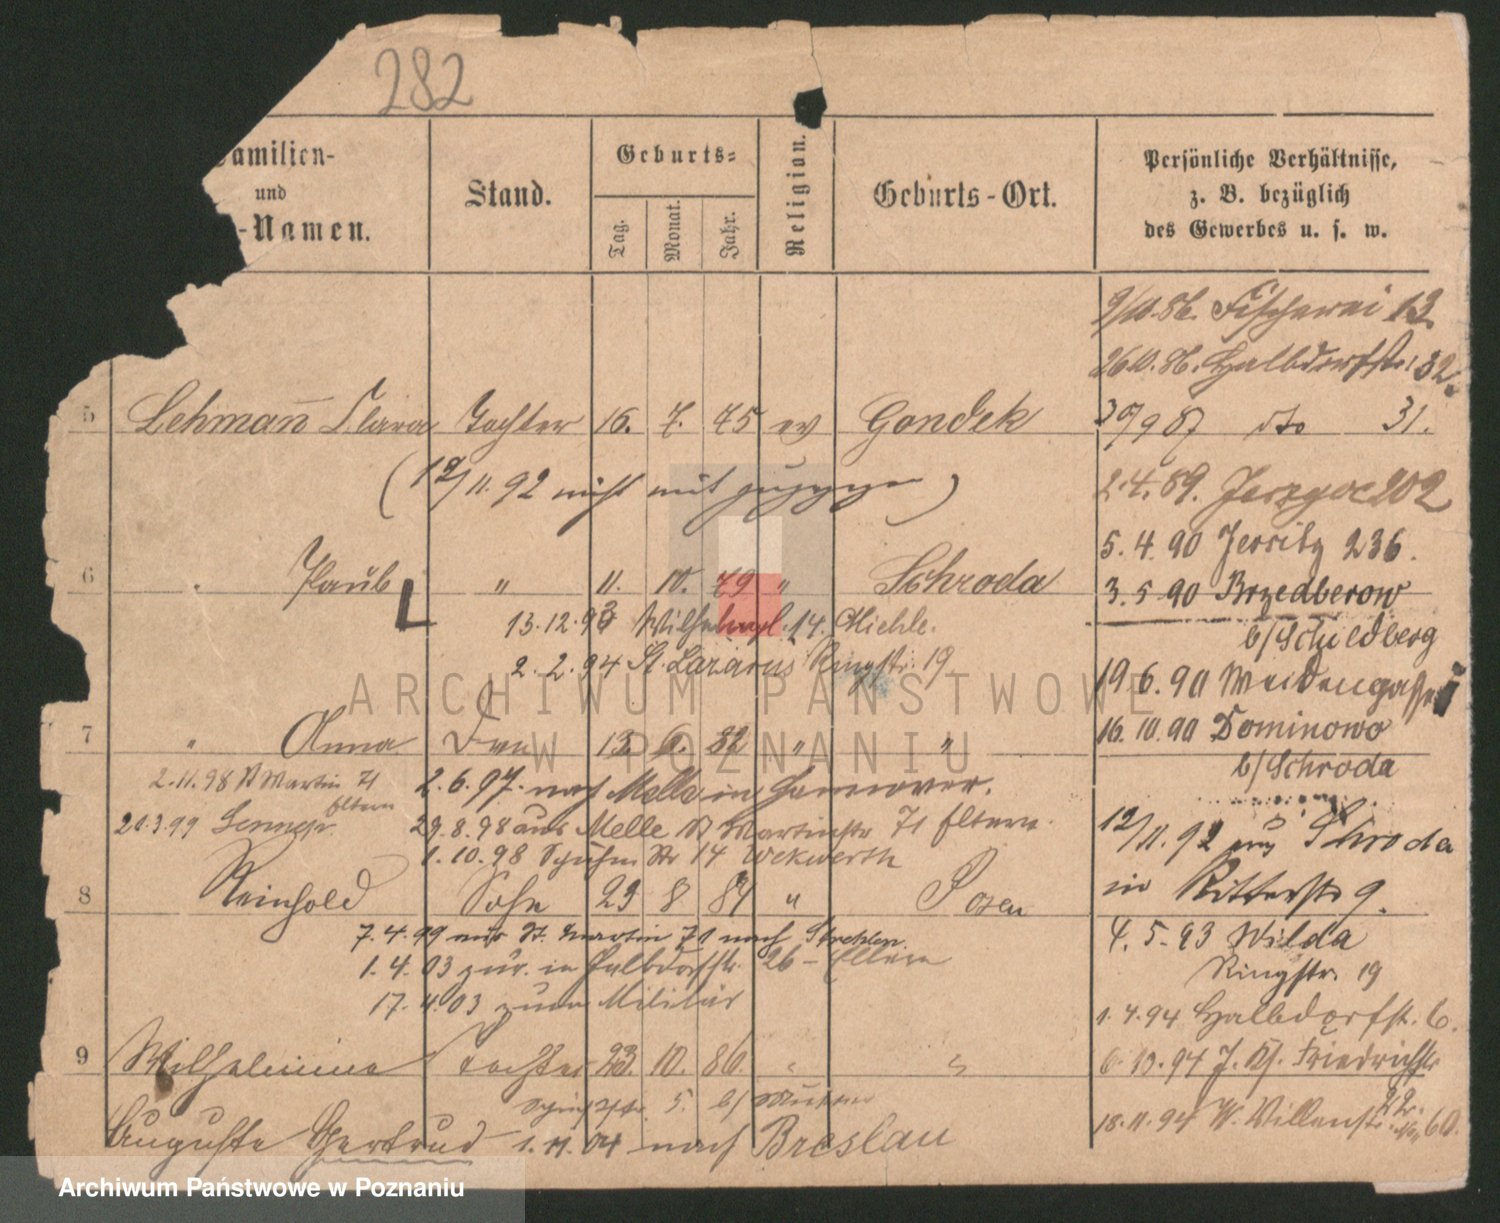 282
Familien-
und
-Namen.
Stand.
Geburts-
Tag.
Monat.
Jahr.
Religion.
Geburts-Ort.
Persönliche Verhältnisse,
z. B. bezüglich
des Gewerbes u. s. w.
9/10.86. Fischerei 13.
26.10.86. Halbdorfstr. 32.
5 Lehmann Clara Tochter 16. 7. 75 ev Gondek
30/9 87 dto 31.
(12/11.92 nicht mit zugezogen)
2.4.89. Jerzyce 202
5.4.90 Jersitz 236.
6 " Paul " 11. 10. 79 " Schroda
3.5.90 Brzedberow
b/Schildberg
13.12.93 14. Miehle.
2.2.94 St. Lazarus Ringstr. 19.
19.6.90 Weidengasse
16.10.90 Dominowo
b/Schroda
7 " Anna 13. 6. 82 " "
2.11.98 St Martin 71
Eltern
2.6.97. nach Melle in Hannover.
20.3.99
29.8.98 aus Melle St Martinstr 71 Eltern.
1.10.98 Str 14 Wekwerth
12/11.92 aus Schroda
in Ritterstr 9.
8 Reinhold Sohn 23 8 84 " Posen
7.4.99 aus St. Martin 71 nach Strehlen
1.4.03 zur. in Halbdorfstr. 26 - Eltern
17.4.03 zum Militär
4.5.93 Wilda
Ringstr. 19
1.4.94 Halbdorfstr. 6.
9 Wilhelmine Tochter 23. 10. 86. " "
Auguste Gertrud 1.11.04 nach Breslau
18.11.94 60.
ARCHIWUM PAŃSTWOWE
W POZNANIU
Archiwum Państwowe w Poznaniu